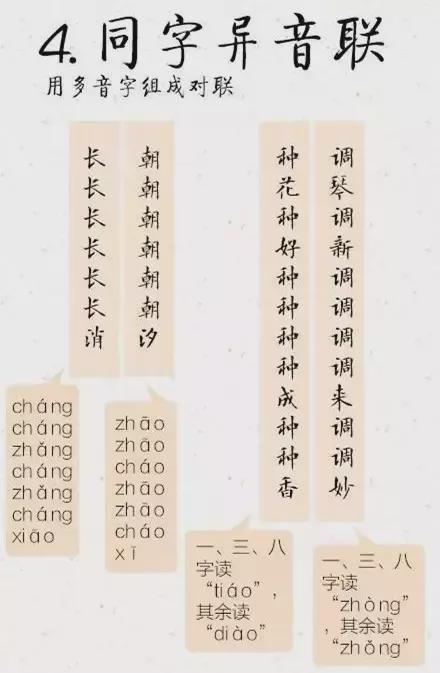 4.同字异音联
用多音字组成对联
调琴调新调调调调来调调妙
种花种好种种种种成种种香
朝朝朝朝朝朝汐
长长长长长长消
cháng
cháng
zhǎng
cháng
zhǎng
cháng
xiāo
zhāo
zhāo
cháo
zhāo
zhāo
cháo
xī
一、三、八
字读
“tiáo”，
其余读
“diào”
一、三、八
字读
“zhòng”
，其余读
“zhǒng”